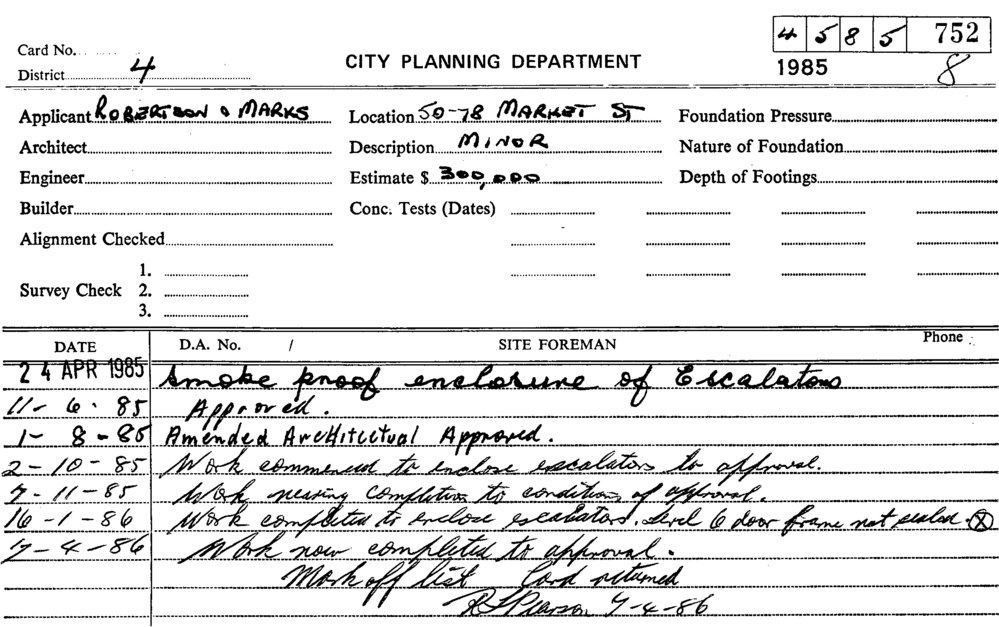 4 5 8 5 752
Card No.
District 4
CITY PLANNING DEPARTMENT
1985 8
Applicant ROBERTSON & MARKS Location 50-78 MARKET ST Foundation Pressure
Architect Description MINOR Nature of Foundation
Engineer Estimate $ 300,000 Depth of Footings
Builder Conc. Tests (Dates)
Alignment Checked
1.
Survey Check 2.
3.
DATE D.A. No. / SITE FOREMAN Phone
24 APR 1985 Smoke proof enclosure of Escalators
11-6-85 Approved.
1-8-85 Amended Architectual Approved.
2-10-85 Work commenced to enclose escalators to approval.
7-11-85 Work nearing completion to conditions of approval.
16-1-86 Work completed to enclose escalators. Level 6 door frame not sealed. X
7-4-86 Work now completed to approval.
Mark off list Card returned
R Pearson 7-4-86